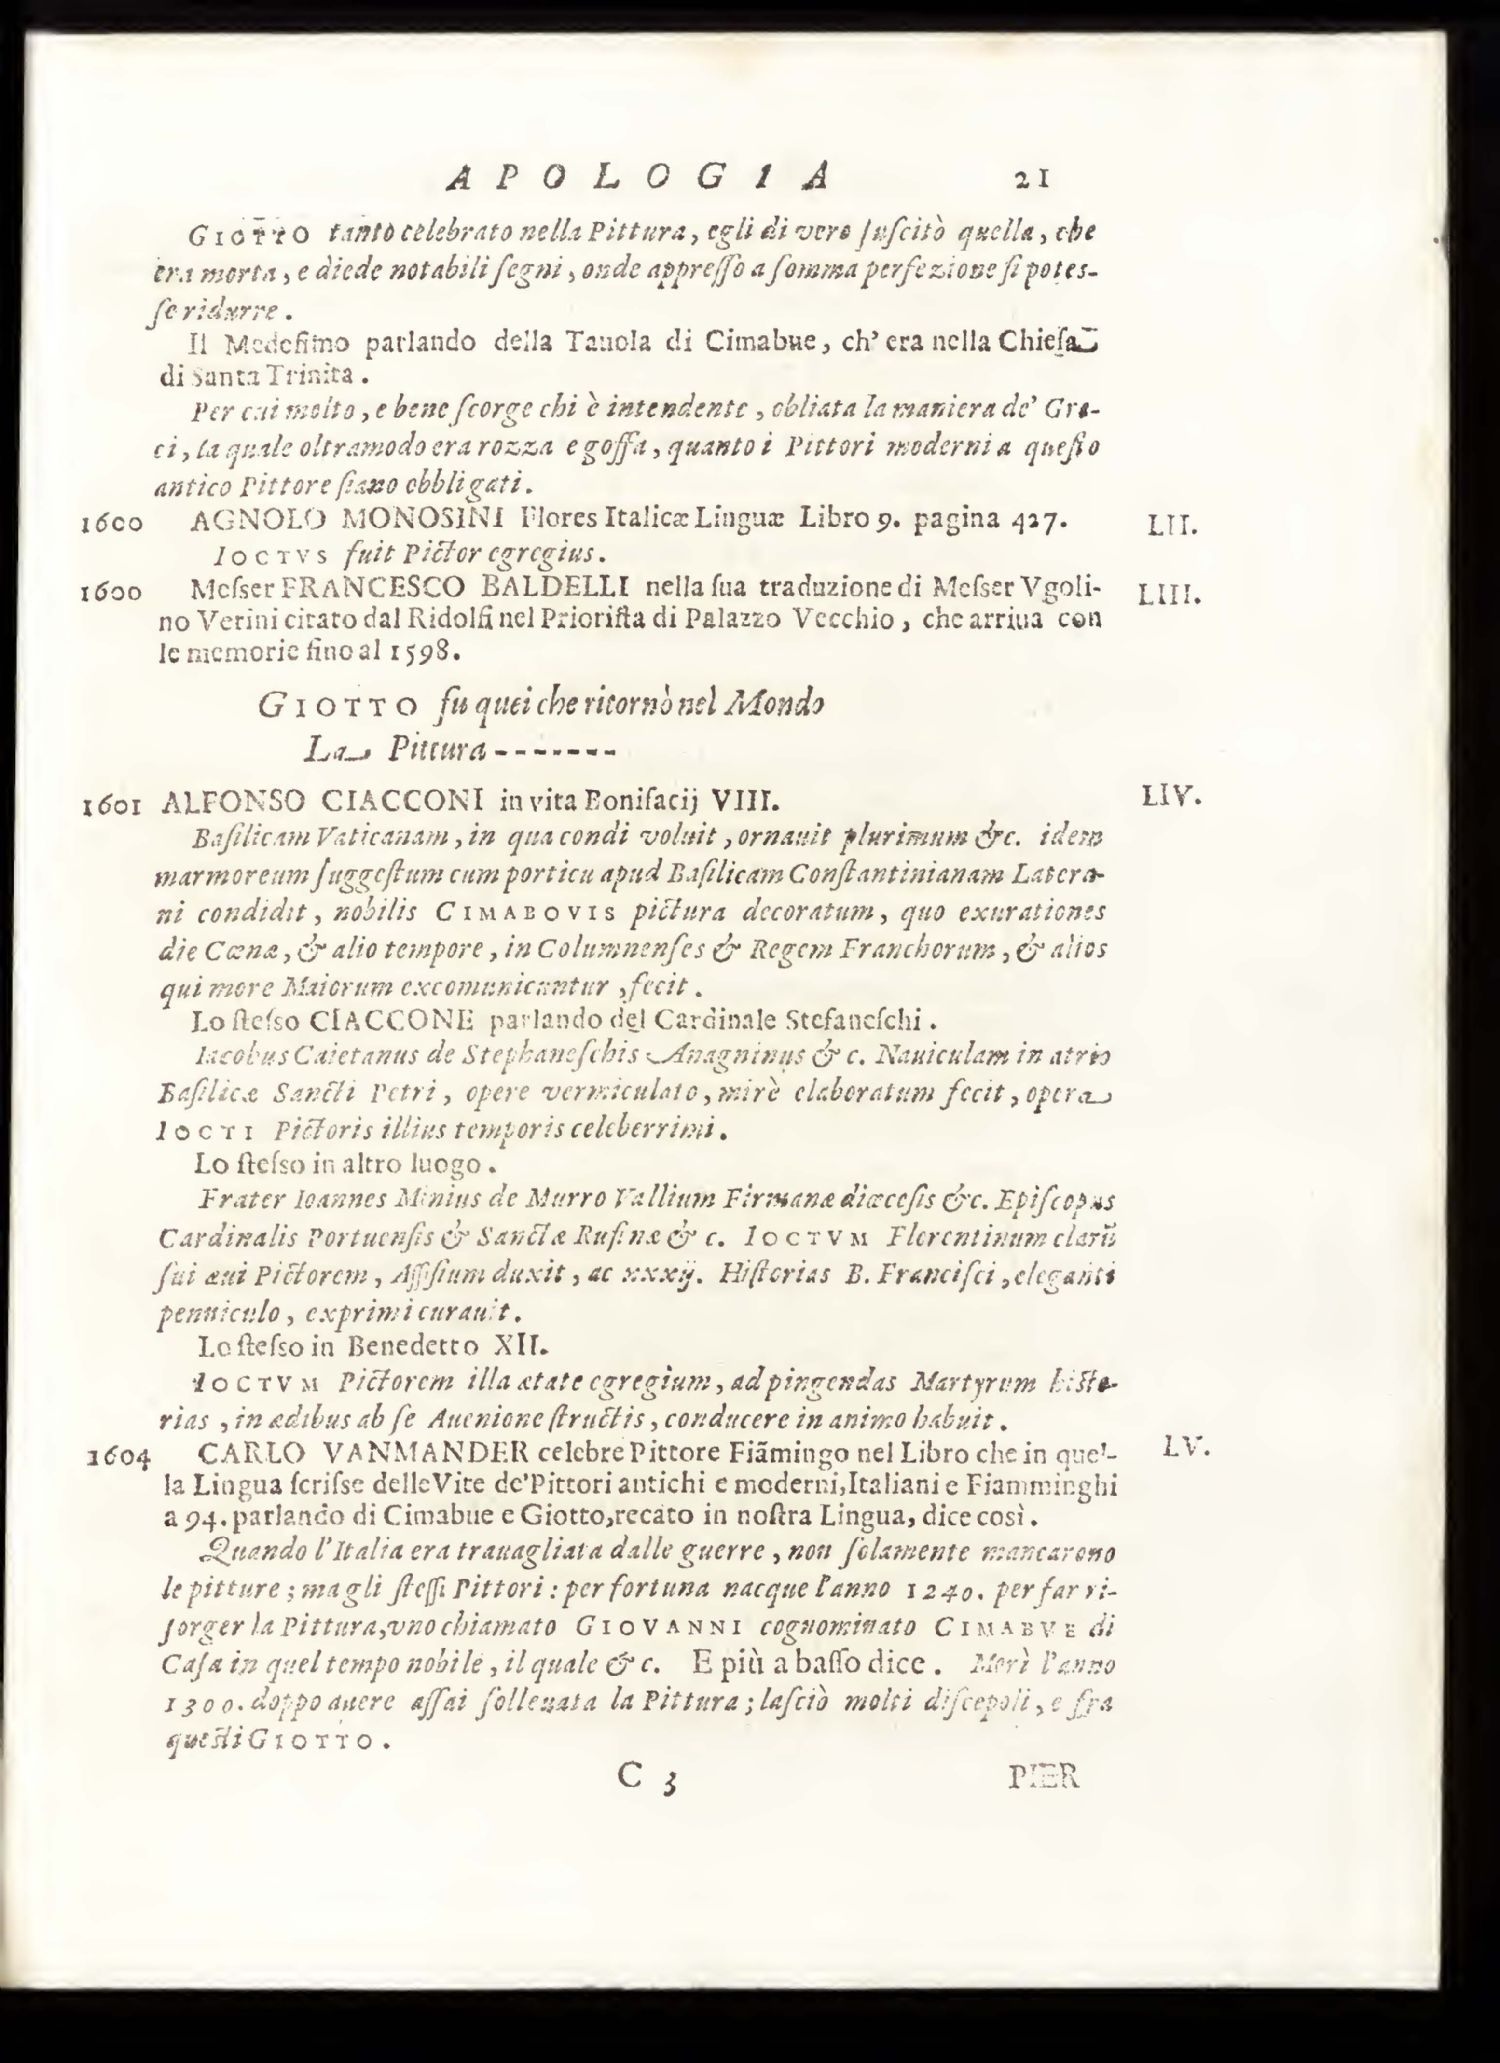 APOLOGIA 21
GIOTTO tanto celebrato nella Pittura, egli di vero ſuſcitò quella, che
era morta, e diede notabili ſegni, onde appreſſo a ſomma perfezione ſi potes-
ſe ridurre.
Il Medeſimo parlando della Tauola di Cimabue, ch' era nella Chieſa
di Santa Trinita.
Per cui molto, e bene ſcorge chi è intendente, obliata la maniera de' Gre-
ci, la quale oltramodo era rozza e goffa, quanto i Pittori moderni a queſto
antico Pittore ſiano obbligati.
1600 AGNOLO MONOSINI Flores Italicæ Linguæ Libro 9. pagina 427. LII.
IOCTVS fuit Pictor egregius.
1600 Meſser FRANCESCO BALDELLI nella ſua traduzione di Meſser Vgoli- LIII.
no Verini citato dal Ridolfi nel Prioriſta di Palazzo Vecchio, che arriua con
le memorie fino al 1598.
GIOTTO fu quei che ritornò nel Mondo
La Pittura -------
1601 ALFONSO CIACCONI in vita Bonifacij VIII. LIV.
Baſilicam Vaticanam, in qua condi voluit, ornauit plurimum &c. idem
marmoreum ſuggeſtum cum porticu apud Baſilicam Conſtantinianam Latera-
ni condidit, nobilis CIMABOVIS pictura decoratum, quo exurationes
die Cœnæ, & alio tempore, in Columnenſes & Regem Franchorum, & alios
qui more Maiorum excomunicantur, fecit.
Lo ſteſso CIACCONE parlando del Cardinale Stefaneſchi.
Iacobus Caietanus de Stephaneſchis Anagninus & c. Nauiculam in atrio
Baſilicæ Sancti Petri, opere vermiculato, mirè elaboratum fecit, opera
IOCTI Pictoris illius temporis celeberrimi.
Lo ſteſso in altro luogo.
Frater Ioannes Minius de Murro Vallium Firmanæ diœceſis &c. Epiſcopus
Cardinalis Portuenſis & Sanctæ Rufinæ & c. IOCTVM Florentinum clarū
ſui æui Pictorem, Aſſiſium duxit, ac xxxij. Hiſtorias B. Franciſci, eleganti
penniculo, exprimi curauit.
Lo ſteſso in Benedetto XII.
IOCTVM Pictorem illa ætate egregium, ad pingendas Martyrum hiſto-
rias, in ædibus ab ſe Auenione ſtructis, conducere in animo habuit.
1604 CARLO VANMANDER celebre Pittore Fiāmingo nel Libro che in quel- LV.
la Lingua ſcriſse delle Vite de' Pittori antichi e moderni, Italiani e Fiamminghi
a 94. parlando di Cimabue e Giotto, recato in noſtra Lingua, dice così.
Quando l'Italia era trauagliata dalle guerre, non ſolamente mancarono
le pitture; ma gli ſteſſi Pittori: per fortuna nacque l'anno 1240. per far ri-
ſorger la Pittura, vno chiamato GIOVANNI cognominato CIMABVE di
Caſa in quel tempo nobile, il quale & c. E più a baſſo dice. Morì l'anno
1300. doppo auere aſſai ſolleuata la Pittura; laſciò molti diſcepoli, e fra
queſti GIOTTO.
C 3 PIER